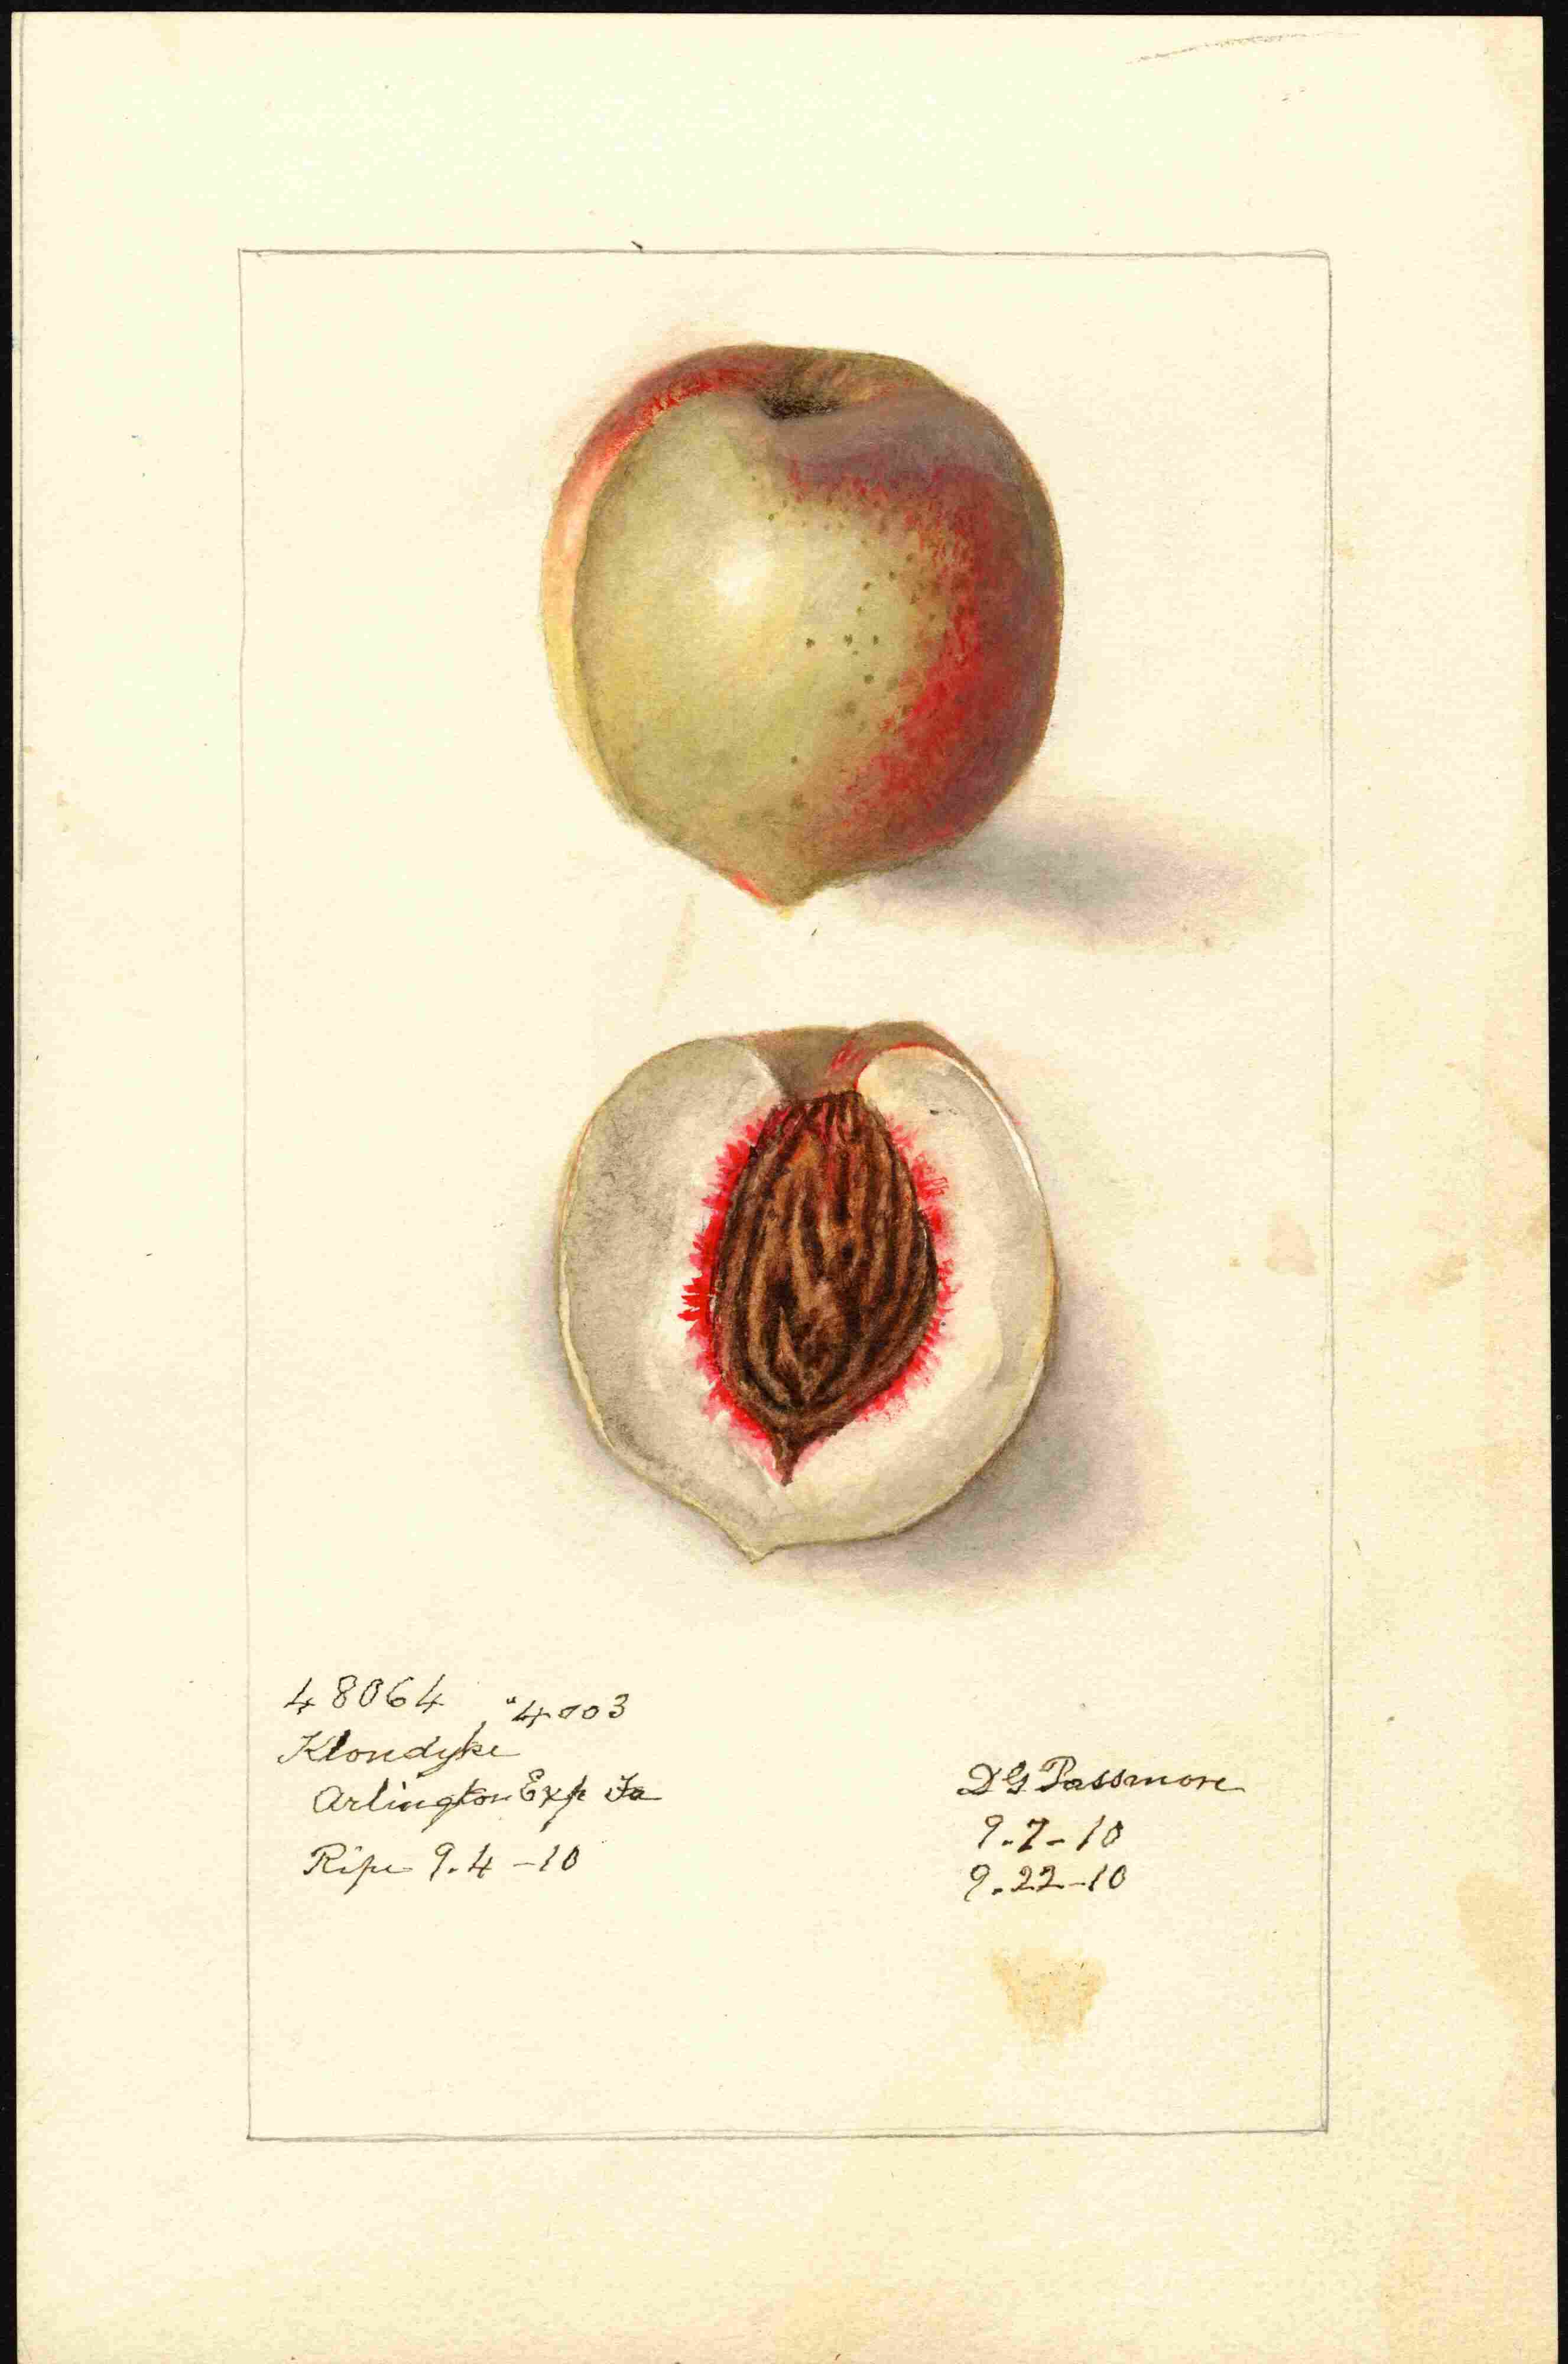 48064 "4003
Klondyke
Arlington Exp Fa
Ripe 9.4-10
D G Passmore
9.7-10
9.22-10